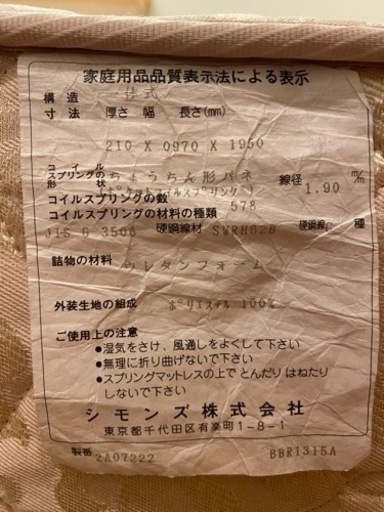 家庭用品品質表示法による表示
構造 一体式
寸法 厚さ 幅 長さ(mm)
210 X 0970 X 1950
コイルスプリングの形状 ちょうちん形バネ 線径 1.90 m/m
(ポケットコイルスプリング)
コイルスプリングの数 578
コイルスプリングの材料の種類
JIS G 3506 硬鋼線材 SWRH62B 種
詰物の材料 ウレタンフォーム
外装生地の組成 ポリエステル 100%
ご使用上の注意
●湿気をさけ、風通しをよくして下さい
●無理に折り曲げないで下さい
●スプリングマットレスの上で とんだり はねたり
しないで下さい
シモンズ株式会社
東京都千代田区有楽町1-8-1
製番 2A07222 BBR1315A